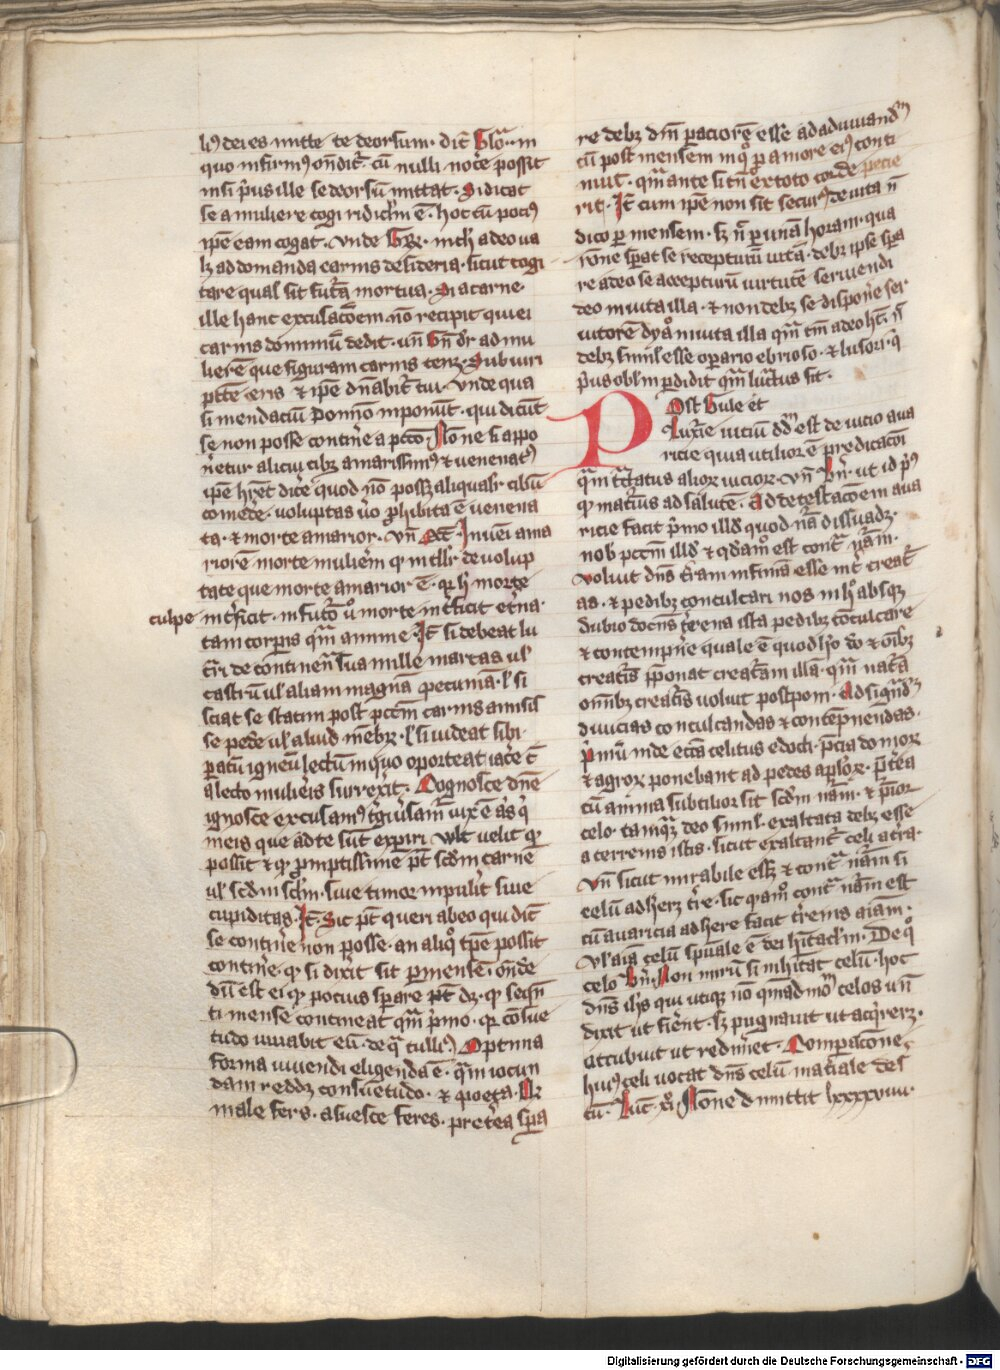 lius dei es mitte te deorsum. dicit Glo. in
quo infirmus ondit. cum nulli noce possit
nisi prius ille se deorsum mittat. Si dicat
se a muliere cogi
ipse eam cogat. Unde
ad domanda carnis desideria. sicut cogi
tare qualis sit mortua. Si a carne
ille hanc excusacionem non recipit qui ei
carnis dominium dedit. Gen dicitur ad mu
lierem que figuram carnis tenet. Sub viri
eris et ipse dominabitur tui. Unde qua
si mendacium Domino imponunt. qui dicunt
se non posse continere a peccato Nonne si appo
neretur alicui cibus amarissimus et venenatus
ipse haberet dicere quod non posset aliqualiter cibum
comedere. voluptas vero prohibita est venena
ta. et morte amarior. Inveni ama
riorem morte mulierem de volup
tate que morte amarior est. morte
culpe interficit. in futuro vero morte interficit eterna
tam corporis quam anime. Item si debeat lu
crari de continencia sua mille marcas vel
castrum vel aliam magnam pecuniam. vel si
sciat se statim post peccatum carnis amissis
se pede vel aliud membrum. vel si videat sibi
paratum igneum lectum in quo oporteat iacere
a lecto mulieris surrexerit. Cognosce domine
ignosce excusamus
meis que ad te sunt experiri vult velit quod
possit et quod promptissime potest secundum carnem
vel secundum sive timor impulerit sive
cupiditas. Item. Sic potest queri ab eo qui dicit
se continere non posse. an aliquo tempore possit
continere. quod si dixerit sit per mensem. ondere
dum est ei quod pocius sperare potest
ti mense contineat quam primo. quia consue
tudo iuvabit eum. de qua tullius) Optima
forma vivendi eligenda est. quam iocun
dam reddet consuetudo. et poeta.
male fers. assuesce feres. preterea spera
re debet dominum paciorem esse ad adiuvandum
cum post mensem in quo pro amore eius conti
nuit. quam ante si tamen ex toto corde petie
rit. Item cum ipse non sit securus de vita non
dico per mensem. sed non per unam horam. qua
racione sperat se recepturum vitam. debet ipse spera
re a deo se accepturum virtutem serviendi
deo in vita illa. et non debet se disponere ser
vitorem dyaboli in vita illa quam tamen a deo habet. non
debet similis esse operario ebrioso. et lusori. qui
prius perdidit quam lucratus sit.
Post Gule et
Luxurie vicium dicendum est de vicio ava
ricie quia utilior est predicacioni
quam tractatus aliorum viciorum. ut id prius
quod magis ad salutem. Ad detestacionem ava
ricie facit primo illud quod natura dissuadet.
nobis peccatum illud et quodammodo est contra naturam.
Voluit dominus terram infimam esse inter creatur
as. et pedibus conculcari nos in hoc absque
dubio docens terrena ista pedibus conculcare
et contempnere quale est quod homo deo et omnibus
creaturis preponat creaturam illam. quam natura
omnibus creaturis voluit postponi. Ad significandum
divicias conculcandas et contempnendas.
primum inde ecclesia celitus edocti. precia domorum
et agrorum ponebant ad pedes apostolorum. preterea
cum anima subtilior sit secundum naturam. et purior
celo. tamquam deo similis. exaltata debet esse
a terrenis istis. sicut exaltantur celi a terra.
Unde sicut mirabile esset et contra naturam si
celum adhereret terre. sic quodammodo contra naturam est
cum avaricia adherere facit terrenis animam.
Vel anima celum spirituale est dei habitaculum. De quo
celo Non mirum si inhabitat celum. hoc
dominus Ihesus qui utique non quemadmodum celos unde
dixit ut fierent. sed pugnavit ut acquireret.
occubuit ut redimeret. Comparacione
huius celi vocat dominus celum materiale deser
tum. Luc. xv. Nonne dimittit lxxxxviiii.